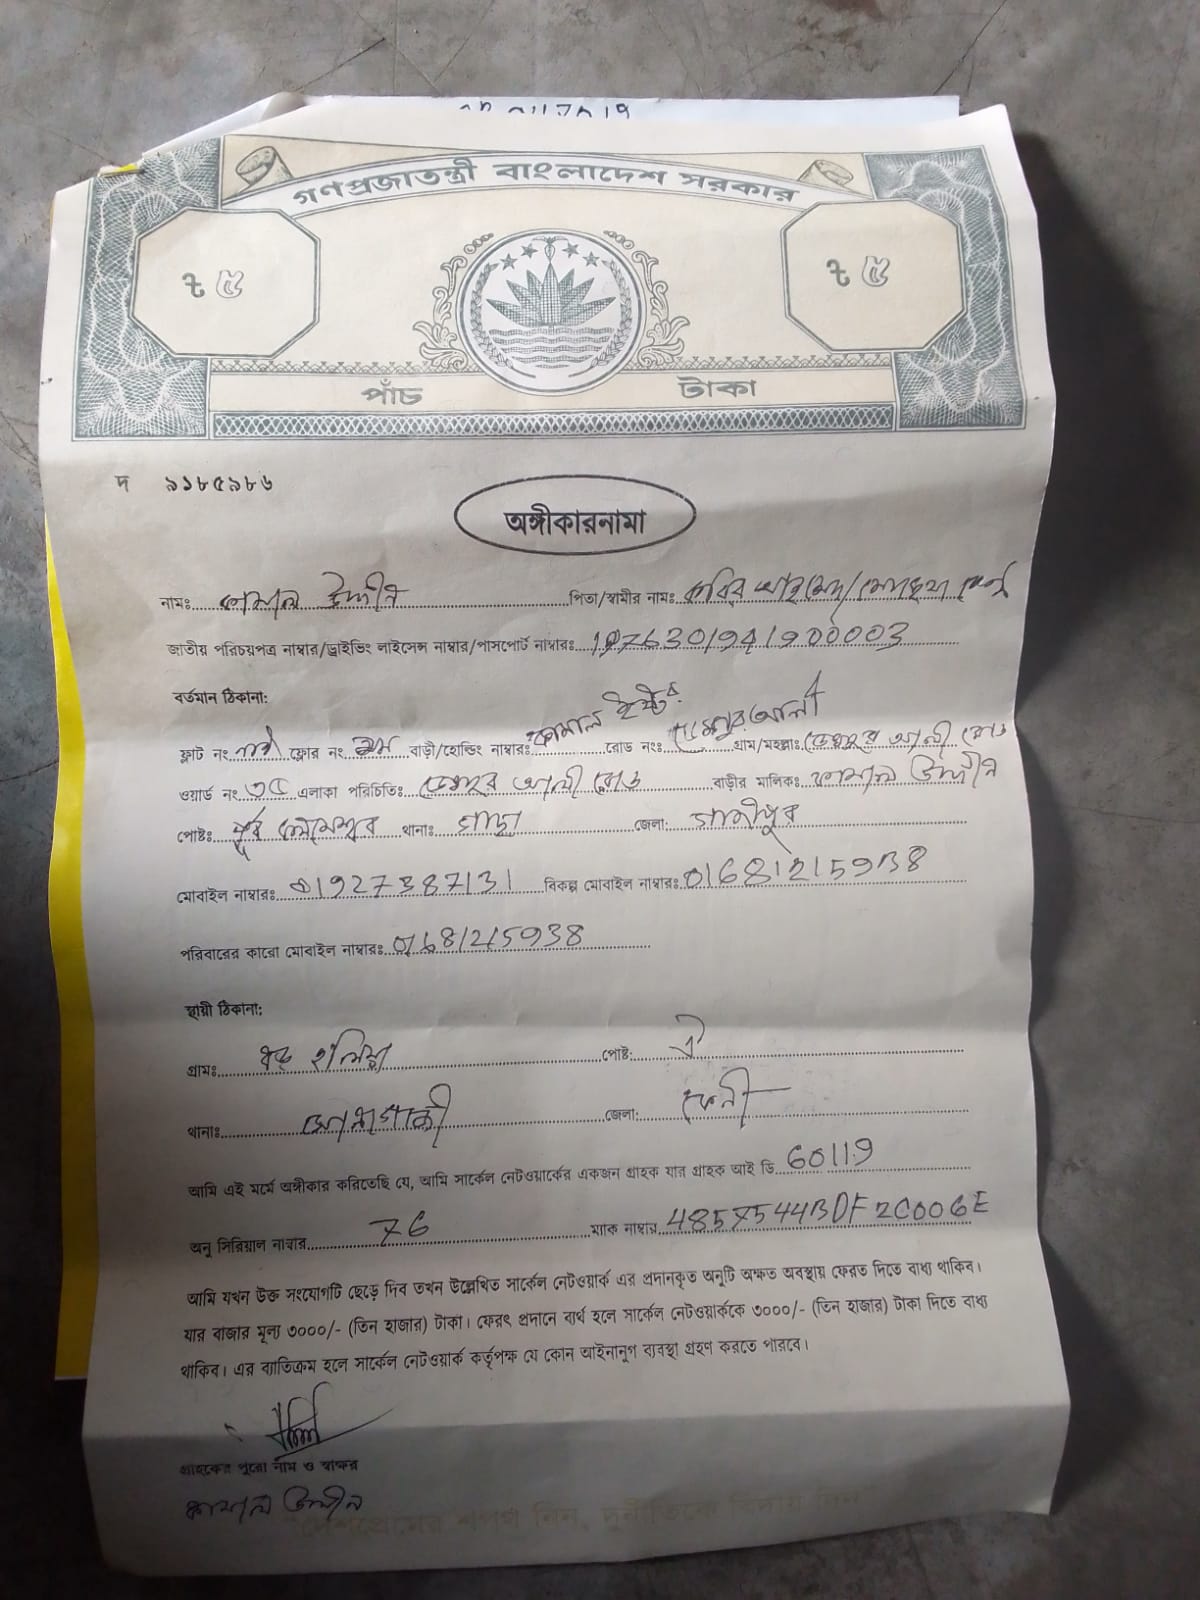 গণপ্রজাতন্ত্রী বাংলাদেশ সরকার
৳ ৫ ৳ ৫
পাঁচ টাকা
দ ৯১৮৫৯৮৬
অঙ্গীকারনামা
নামঃ কামাল উদ্দীন পিতা/স্বামীর নামঃ কবির আহমেদ/
জাতীয় পরিচয়পত্র নাম্বার/ড্রাইভিং লাইসেন্স নাম্বার/পাসপোর্ট নাম্বারঃ 1976301941900003
বর্তমান ঠিকানা:
ফ্লাট নং ফ্লোর নং বাড়ী/হোল্ডিং নাম্বারঃ কামাল রোড নংঃ গ্রাম/মহল্লাঃ আলী রোড
ওয়ার্ড নং ৩৫ এলাকা পরিচিতিঃ আলী রোড বাড়ীর মালিকঃ কামাল উদ্দীন
পোষ্টঃ পূর্ব থানাঃ গাছা জেলা: গাজীপুর
মোবাইল নাম্বারঃ 01927387131 বিকল্প মোবাইল নাম্বারঃ
পরিবারের কারো মোবাইল নাম্বারঃ 01681215938
স্থায়ী ঠিকানা:
গ্রামঃ পোষ্ট: ঐ
থানাঃ সোনাগাজী জেলা: ফেনী
আমি এই মর্মে অঙ্গীকার করিতেছি যে, আমি সার্কেল নেটওয়ার্কের একজন গ্রাহক যার গ্রাহক আই ডি 60119
অনু সিরিয়াল নাম্বার 76 ম্যাক নাম্বার 485754413DF2C006E
আমি যখন উক্ত সংযোগটি ছেড়ে দিব তখন উল্লেখিত সার্কেল নেটওয়ার্ক এর প্রদানকৃত অনুটি অক্ষত অবস্থায় ফেরত দিতে বাধ্য থাকিব।
যার বাজার মূল্য ৩০০০/- (তিন হাজার) টাকা। ফেরৎ প্রদানে ব্যর্থ হলে সার্কেল নেটওয়ার্ককে ৩০০০/- (তিন হাজার) টাকা দিতে বাধ্য
থাকিব। এর ব্যাতিক্রম হলে সার্কেল নেটওয়ার্ক কর্তৃপক্ষ যে কোন আইনানুগ ব্যবস্থা গ্রহণ করতে পারবে।
গ্রাহকের পুরো নাম ও স্বাক্ষর
কামাল উদ্দীন
"দেশপ্রেমের শপথ নিন, দুর্নীতিকে বিদায় দিন"